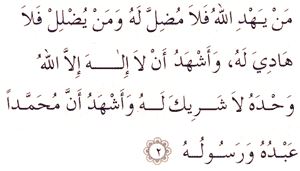 مَنْ يَهْدِ اللهُ فَلاَ مُضِلَّ لَهُ وَمَنْ يُضْلِلْ فَلاَ
هَادِيَ لَهُ، وَأَشْهَدُ أَنْ لاَ إِلــٰـهَ إِلاَّ اللهُ
وَحْدَهُ لاَ شَرِيكَ لَـهُ وَأَشْهَدُ أَنَّ مُحَمَّداً
عَبْدُهُ وَرَسُولُـهُ ٢